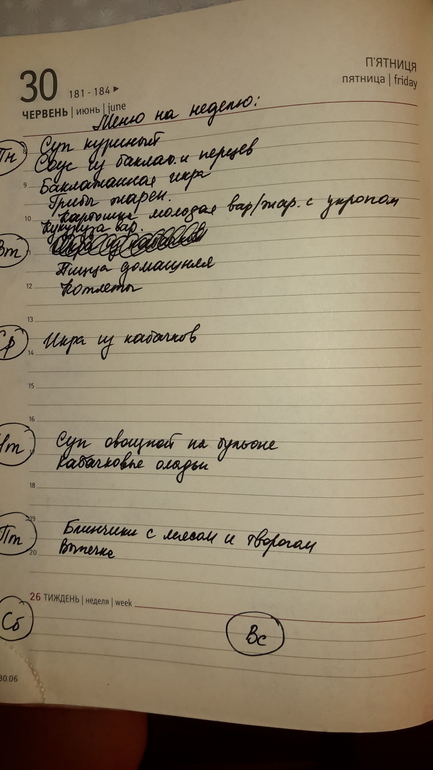 30 181 - 184
П'ЯТНИЦЯ
пятница | friday
ЧЕРВЕНЬ | июнь | june
Меню на неделю:
Пн
Суп куриный
Соус из баклаж. и перцев
9
Баклажанная икра
Грибы жарен.
10
Картошка молодая вар/жар. с укропом
Кукуруза вар.
Вт
Икра из кабачков
Пицца домашняя
12
Котлеты
13
Ср
Икра из кабачков
14
15
16
Чт
Суп овощной на бульоне
Кабачковые оладьи
18
19
Пт
Блинчики с мясом и творогом
20
Выпечка
26 ТИЖДЕНЬ | неделя | week
Сб
Вс
30.06